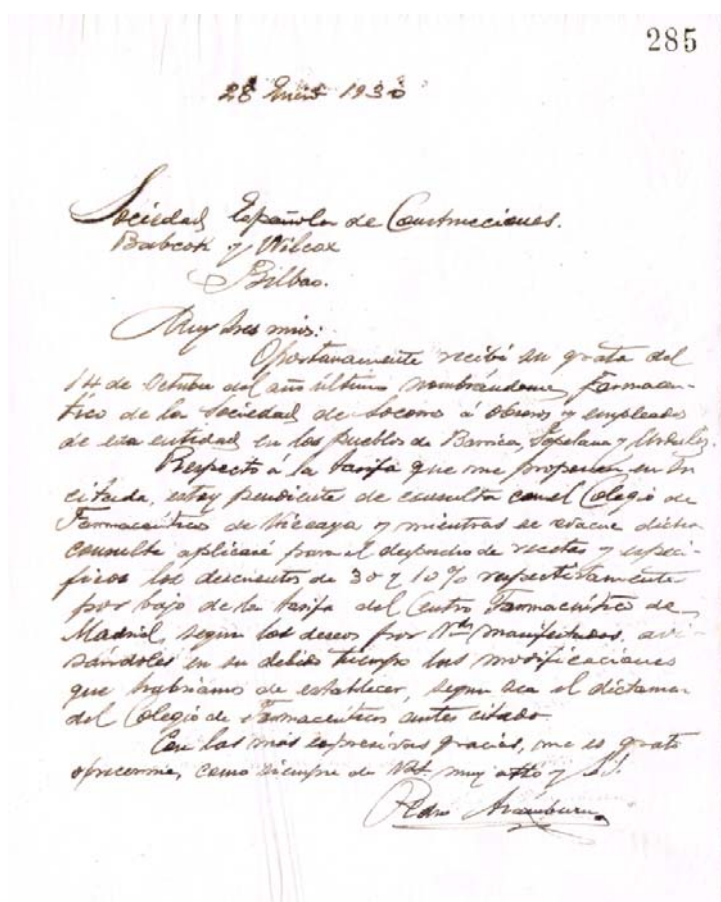 285
28 Enero 1930
Sociedad Española de Construcciones.
Babcok y Wilcox
Bilbao.
Muy Sres mios:
Oportunamente recibí su grata del
14 de Octubre del año último nombrándome Farmaceu-
tico de la Sociedad de Socorro á obreros y empleados
de esa entidad en los pueblos de Barrica, Sopelana y Urduliz.
Respecto á la tarifa que me proponen en su
citada, estoy pendiente de consulta con el Colegio de
Farmaceúticos de Vizcaya y mientras se evacue dicha
consulta aplicaré para el despacho de recetas y especi-
ficos los descuentos de 30 y 10% respectivamente
por bajo de la tarifa del Centro Farmaceútico de
Madrid, segun los deseos por Vds manifestados, avi-
sándoles en su debido tiempo las modificaciones
que habriamos de establecer, segun sea el dictamen
del Colegio de Farmaceúticos antes citado.
Con las mas expresivas gracias, me es grato
ofrecerme, como siempre de Vds. muy atto y S.S.
Pedro Aramburu